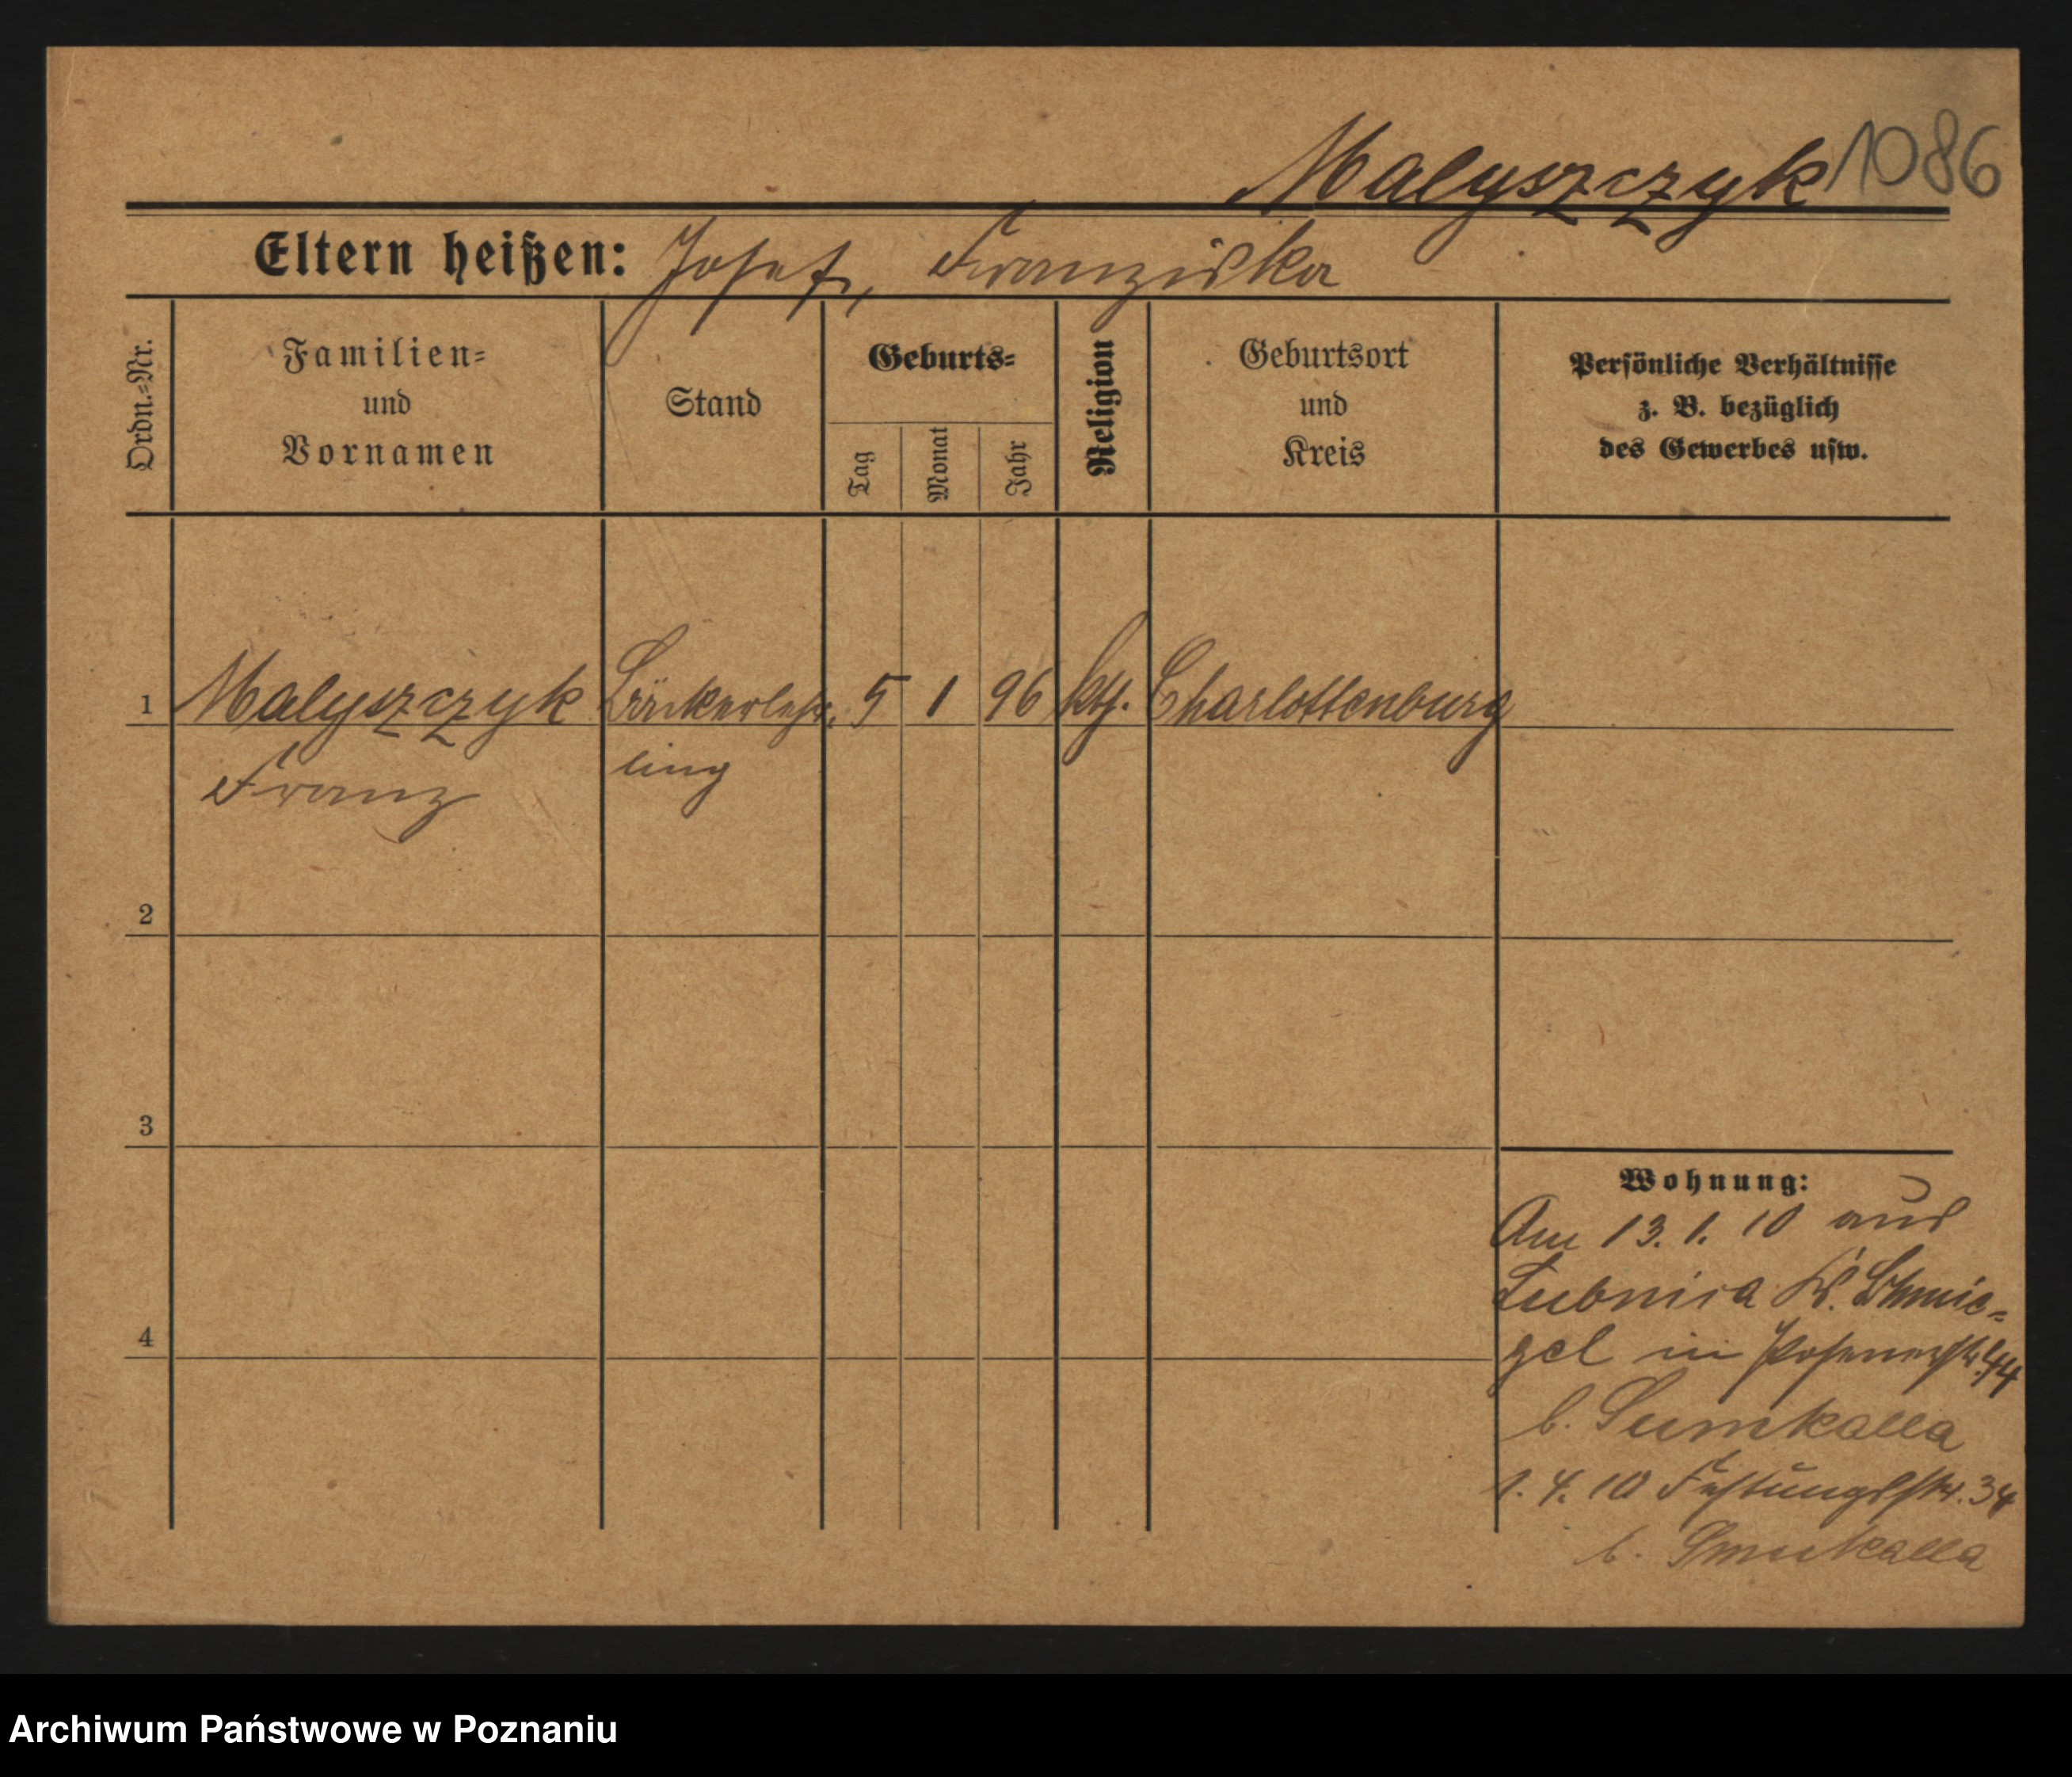 Malyszczyk 1086
Eltern heißen: Josef, Franziska
Ordn.-Nr.
Familien-
und
Vornamen
Stand
Geburts-
Tag
Monat
Jahr
Religion
Geburtsort
und
Kreis
Persönliche Verhältnisse
z. B. bezüglich
des Gewerbes usw.
1 Malyszczyk Bäckerlehr- 5 1 96 kth. Charlottenburg
Franz ling
2
3
4
Wohnung:
Am 13. 1. 10 aus
Lubnica K. Schmie-
gel in Posenerstr. 44
b. Sumkalla
1. 4. 10 Festungsstr. 34
b. Smukalla
Archiwum Państwowe w Poznaniu